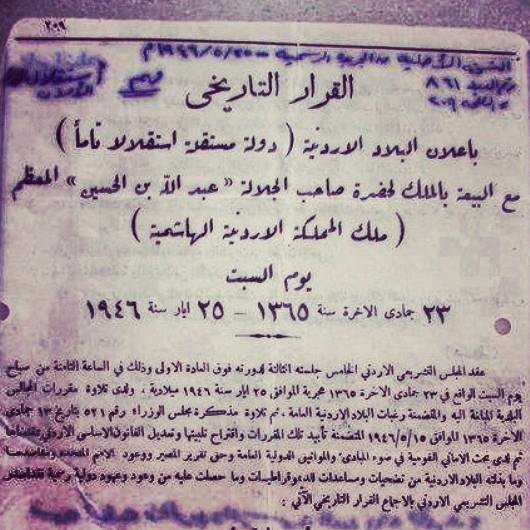 ٢٠٩
النص الأصلية من الجريدة الرسمية - ١٩٤٦/٥/٢٥م
العدد ٨٦١
استقلال
الأردن
القرار التاريخي
باعلان البلاد الاردنية ( دولة مستقلة استقلالا تاماً )
مع البيعة بالملك لحضرة صاحب الجلالة « عبد الله بن الحسين » المعظم
( ملك المملكة الاردنية الهاشمية )
يوم السبت
٢٣ جمادى الآخرة سنة ١٣٦٥ - ٢٥ ايار سنة ١٩٤٦
عقد المجلس التشريعي الاردني الخامس جلسته الثالثة لدورته فوق العادة الاولى وذلك في الساعة الثامنة من صباح
يوم السبت الواقع في ٢٣ جمادى الآخرة ١٣٦٥ هجرية الموافق ٢٥ ايار سنة ١٩٤٦ ميلادية ، ولدى تلاوة مقررات المجالس
البلدية المبلغة اليه والمتضمنة رغبات البلاد الاردنية العامة ، ثم تلاوة مذكرة مجلس الوزراء رقم ٥٢١ بتاريخ ١٣ جمادى
الآخرة ١٣٦٥ الموافق ١٩٤٦/٥/١٥ المتضمنة تأييد تلك المقررات واقتراح تلبيتها وتعديل القانون الاساسي الاردني بمقتضاها
ثم لدى بحث الاماني القومية في ضوء المبادىء والمواثيق الدولية العامة وحق تقرير المصير ووعود الامم المتحدة ومقاصدها
وما بذلته البلاد الاردنية من تضحيات ومساعدات للديموقراطيات وما حصلت عليه من وعود وعهود دولية رسمية
المجلس التشريعي الاردني بالاجماع القرار التاريخي الآتي :